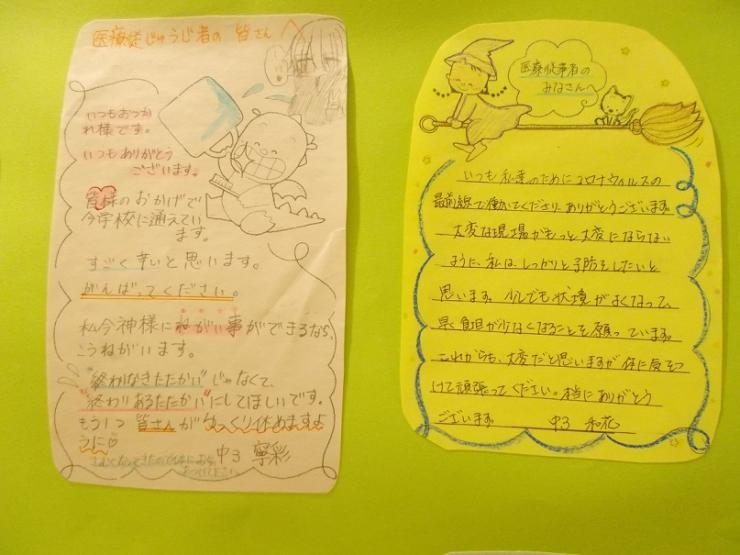 医療従じゅうじ者の 皆さんへ
いつもおつか
れ様です。
いつもありがとう
ございます。
皆様のおかげで
今学校に通えてい
ます。
すごく幸いと思います。
がんばってください。
私今神様にねがい事ができるなら、
こうねがいます。
"終わりなきたたかい"じゃなくて、
"終わりあるたたかい"にしてほしいです。
もう1つ皆さんがゆっくり休めますよ
うに♡
中3 寧彩
医療従事者の
みなさんへ
いつも私達のためにコロナウィルスの
最前線で働いてくださり、ありがとうございます。
大変な現場がもっと大変にならない
ように、私は、しっかりと予防をしたいと
思います。少しでも状境がよくなって、
早く負担が少なくなることを願っています。
これからも、大変だと思いますが体に気をつ
けて頑張ってください。本当にありがとう
ございます。 中3 和花